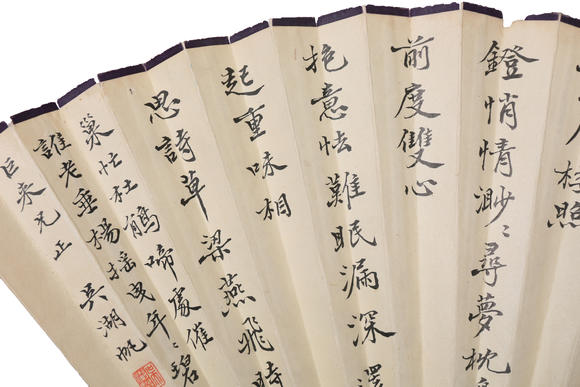 人
照
鐙悄情渺〻尋夢枕
前度雙心
抱意怯難眠漏深
起重味相
思詩草梁燕飛時
巢怯杜鵑啼處催
誰老垂楊搖曳年〻碧
巨來兄正 吳湖帆